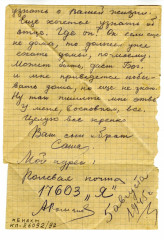 узнать о вашей жизни.
Ещё хочется узнать об
отце. Где он? Он если ещё
не дома, то должен уже
скоро домой, по-моему.
Может быть, даст Бог,
и мне приведётся побы-
вать дома, но ещё не знаю.
Ну там пишите мне ответ
у меня, остальное всё.
Целую вас крепко
Ваш сын и брат
Саша.
Мой адрес:
Полевая почта
17603 "Я"
5 августа
1945 г.